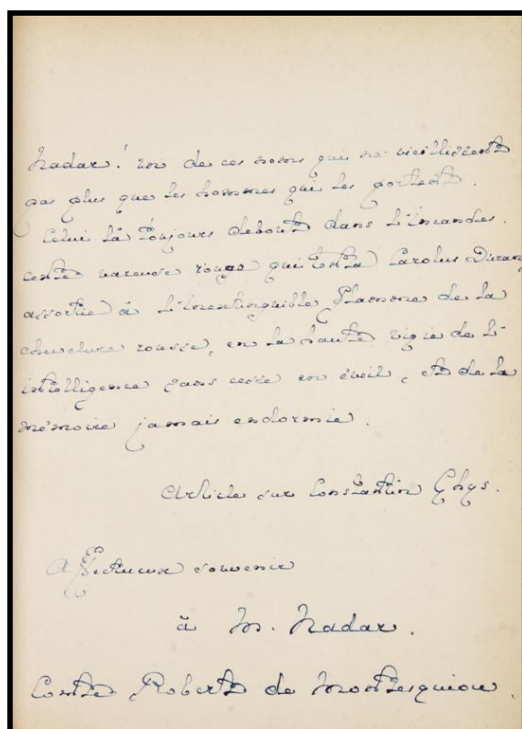 Nadar! un de ces noms qui ne vieillissent
pas plus que les hommes qui les portent.
Celui là toujours debout dans l'incandes-
cente vareuse rouge qui tenta Carolus Duran,
assortie à l'inextinguible flamme de la
chevelure rousse, en la haute vigie de l'
intelligence sans cesse en éveil, et de la
mémoire jamais endormie.
Article sur Constantin Ghys.
Affectueux souvenir
à M. Nadar.
Comte Robert de Montesquiou.